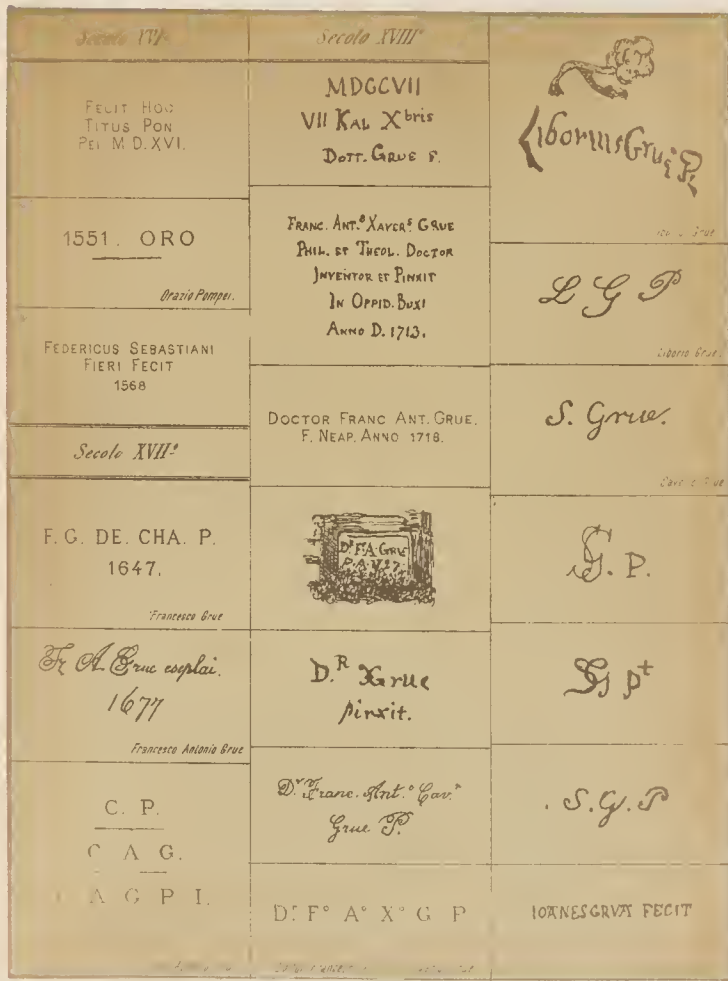 Secolo XVI°
FECIT HOC
TITUS POM
PEI M D. XVI.
1551. ORO
Orazio Pompei.
FEDERICUS SEBASTIANI
FIERI FECIT
1568
Secolo XVII.°
F. G. DE. CHA. P.
1647.
Francesco Grue
Fr A Grue eseplai.
1677
Francesco Antonio Grue
C. P.
C A G.
A G P I.
Secolo XVIII°
MDCCVII
VII KAL Xbris
DOTT. GRUE F.
FRANC. ANT.° XAVER.s GRUE
PHIL. ET THEOL. DOCTOR
INVENTOR ET PINXIT
IN OPPID. BUXI
ANNO D. 1713.
DOCTOR FRANC ANT. GRUE.
F. NEAP. ANNO 1718.
Dr F.A. GRUE
D.R XGrue
pinxit.
Dr. Franc. Ant.° Cav.r
Grue P.
Dr F° A° X° G P
Liborius Grue P.
Grue
L G P
Liborio Grue.
S. Grue.
Grue
SG. P.
SG P+
. S. G. P
IOANES GRVA FECIT